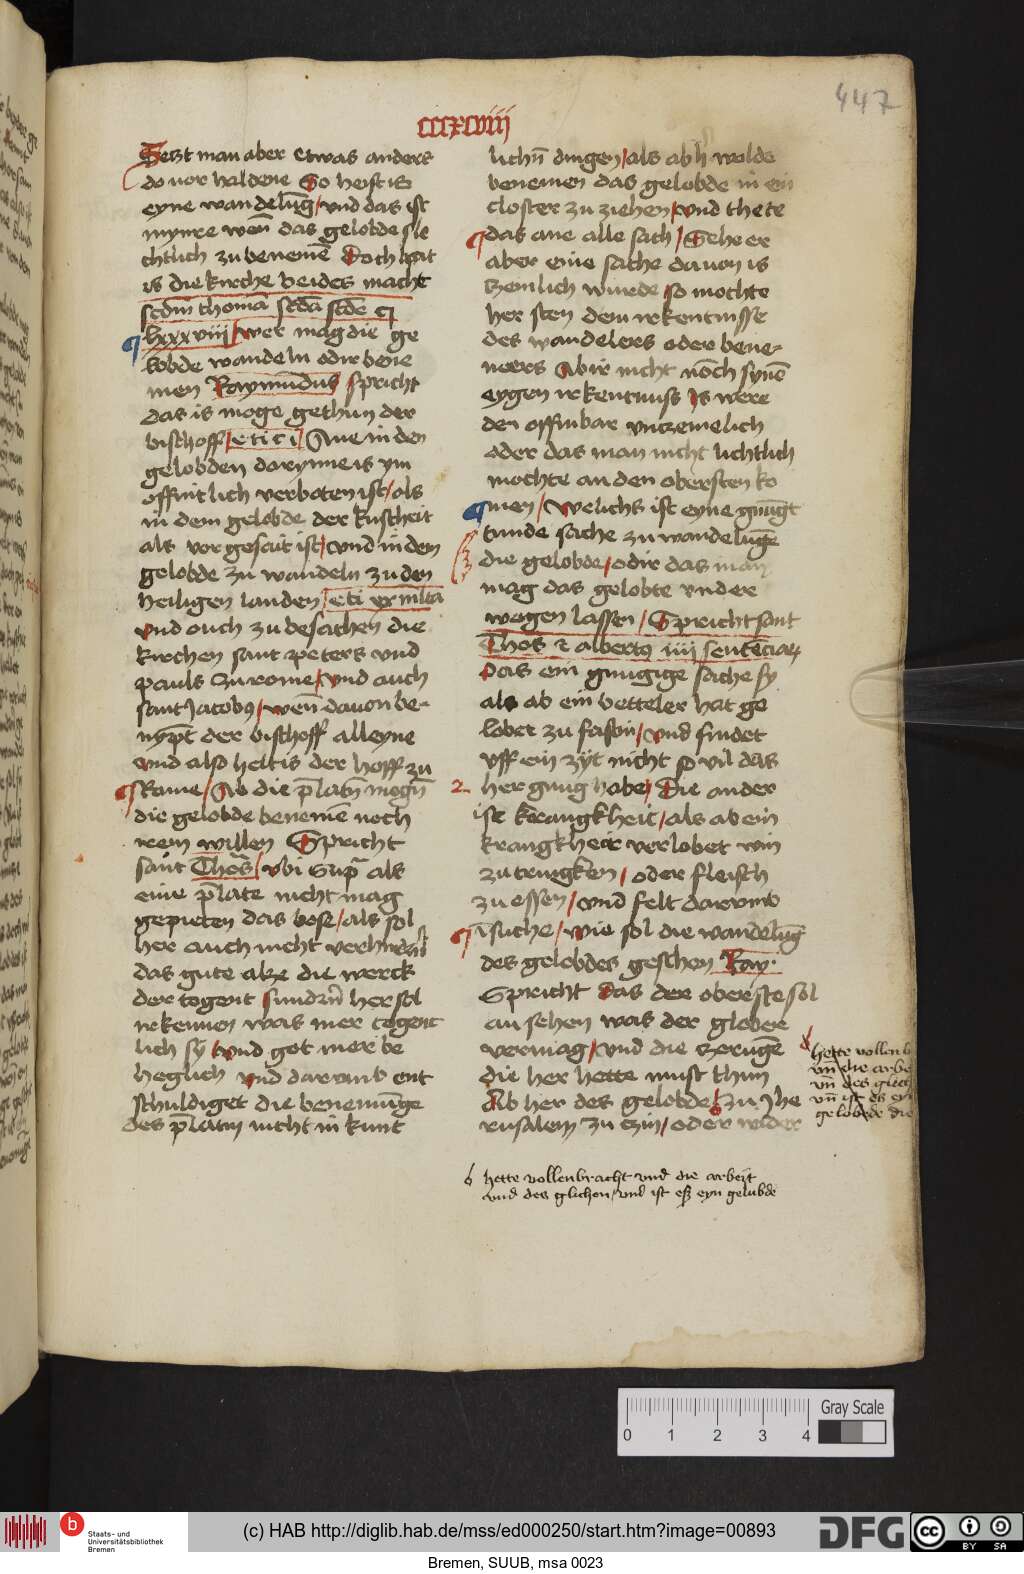 447
cccxcviiij
Setzt man aber etwas anders
do vor haldene So heist is
eyne wandelūg / vnd das ist
mynre wen̄ das gelobde sle
chtlich zu benemē Doch hat
is die kirche beides macht
scdm thomā scdā scde q
lxxxviij / wer mag die ge
lobde wandeln odir bene
men Raymūdus spricht
das is moge gethun der
bischoff / e ti c i / Ane in den
gelobden dorynne is ym
offintlich verboten ist / als
in dem gelobde der kuscheit
als vor gesait ist / vnd in dem
gelobde zu wandeln zu den
heiligen landen / e ti
vnd ouch zu besachen die
kirchen sant peters vnd
pauls zu rome / vnd auch
sant Jacobꝯ / wen̄ dauon be-
nypt der bischoff alleyne
vnd also heltis der hoff zu
Rome / Ab die p̄latn̄ mogn̄
die gelobde benemē noch
irem willen Spricht
sant Thoās / vbi Supᵃ als
eine p̄late nicht mag
gepieten das bose / als sol
her auch nicht verhindˢn
das gute ake die werck
der togent sundrn̄ her sol
irkennen was mer togent
lich sy / vnd got mer be
heglich vnd darumb ent
schuldiget die benemūge
des p̄latin nicht in kunt
lichn̄ dingen / als ab hˢ wolde
benemen das gelobde in ein
closter zu ziehen / vnd thete
das ane alle sach / Sehe er
aber eine sache dauon is
zemlich wurde so mochte
her sten dem irkentnisse
des wandelers oder bene-
mers Abir nicht noch synē
eygen irkentnuss Is were
den offinbar vnczemelich
oder das man nicht lichtlich
mochte an den obersten ko
men / Welichs ist eyne gnūgt
tunde sache zu wandelūge
die gelobde / odir das man
mag das gelobte vndere
wegen lassen / Spricht sant
Thoās ⁊ albertꝯ iiij sentēciaꝝ
Das ein gnugige sache sy
als ab ein betteler hat ge
lobet zu fasten / vnd findet
vff ein zyt nicht so vil das
2. her gnug habe / Die ander
ist krangkheit / als ab ein
krangkheit verlobet win
zu tringken / oder fleisch
zu essen / vnd felt darumb
ī suche / wie sol die wandelūg
des gelobdes geschen Ray.
Spricht das der oberste sol
an sehen was der glober
vermag / vnd die zerūge
die her hette must thun
Ab her des gelobde / zu Jhe
rusalem zu czin / oder wider
hette vollenb
vn̄ die arbe
vn̄ des glich
vn̄ ist es ein
gelobde die
hette vollenbracht vnd die arbeit
vnd des glichen / vnd ist eß eyn gelubde
0 1 2 3 4
Gray Scale
Staats- und
Universitätsbibliothek
Bremen
(c) HAB http://diglib.hab.de/mss/ed000250/start.htm?image=00893
DFG
cc BY SA
Bremen, SUUB, msa 0023